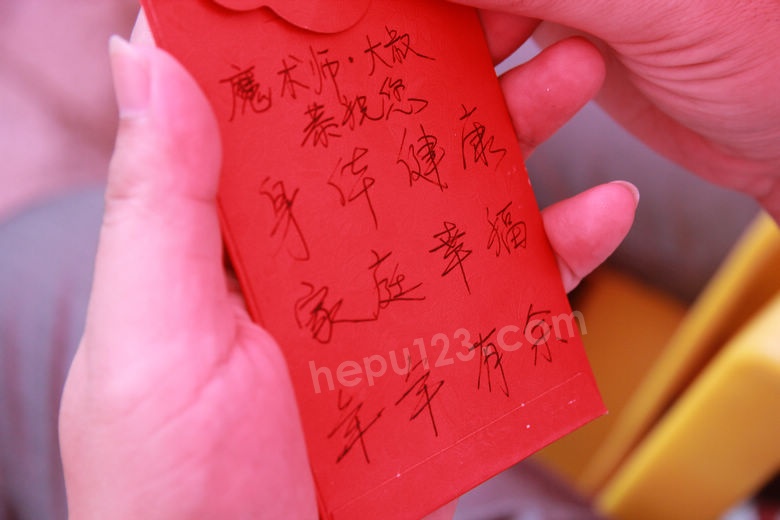 魔术师·大叔
恭祝您
身体健康
家庭幸福
年年有余
hepu123.com